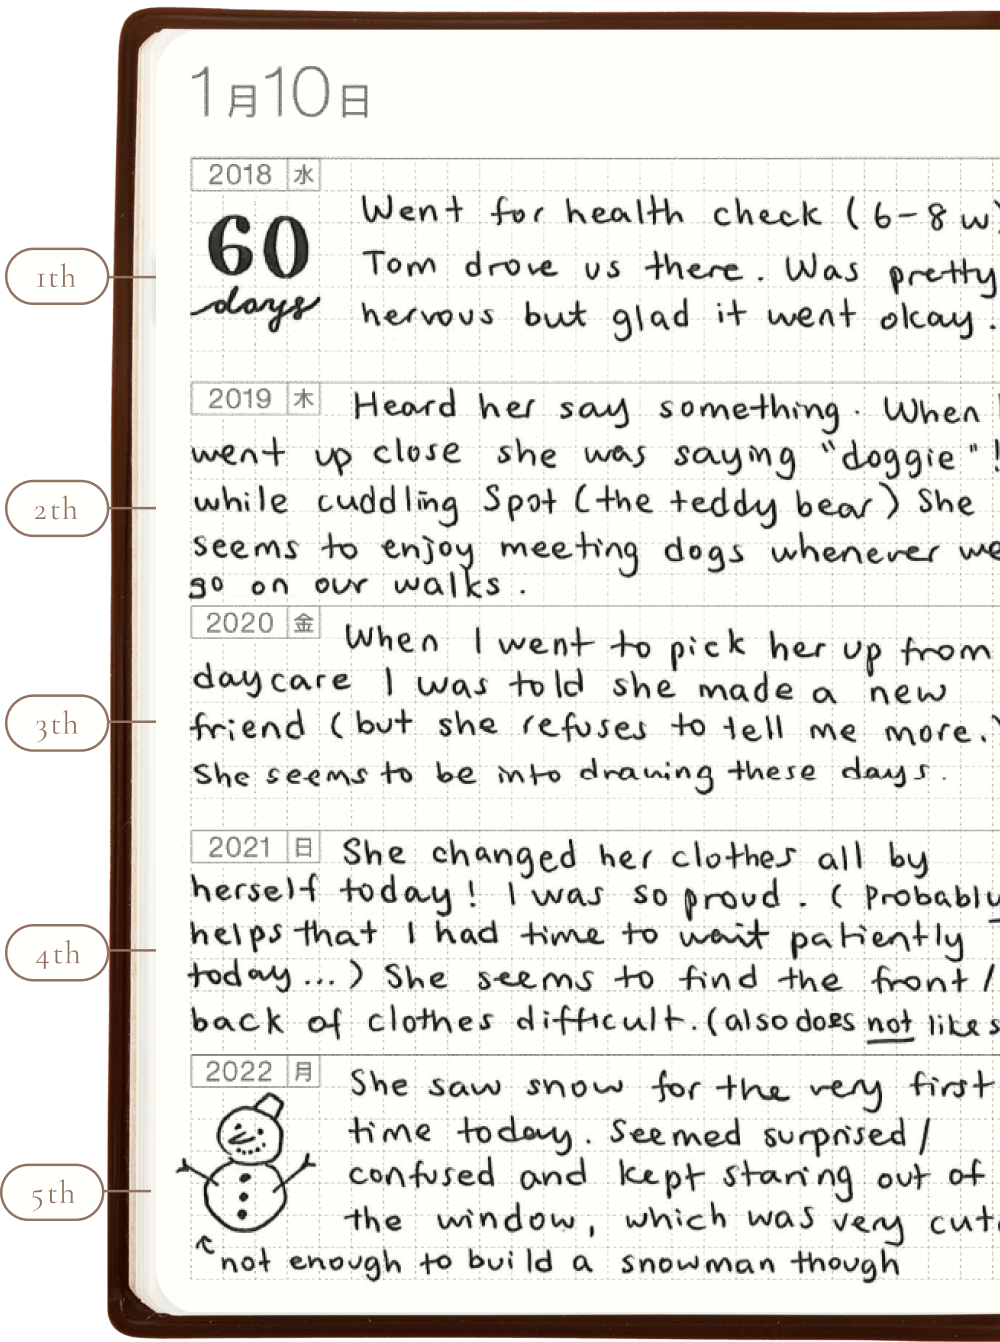 1月10日
2018 水
60
days
Went for health check (6-8 w)
Tom drove us there. Was pretty
nervous but glad it went okay.
1th
2019 木
Heard her say something. When I
went up close she was saying "doggie"!
while cuddling Spot (the teddy bear) She
seems to enjoy meeting dogs whenever we
go on our walks.
2th
2020 金
When I went to pick her up from
daycare I was told she made a new
friend (but she refuses to tell me more.)
She seems to be into drawing these days.
3th
2021 日
She changed her clothes all by
herself today! I was so proud. (Probably
helps that I had time to wait patiently
today...) She seems to find the front/
back of clothes difficult. (also does not like s
4th
2022 月
She saw snow for the very first
time today. Seemed surprised/
confused and kept staring out of
the window, which was very cut
not enough to build a snowman though
5th